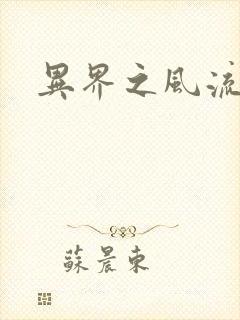 異界之風流
蘇晨東